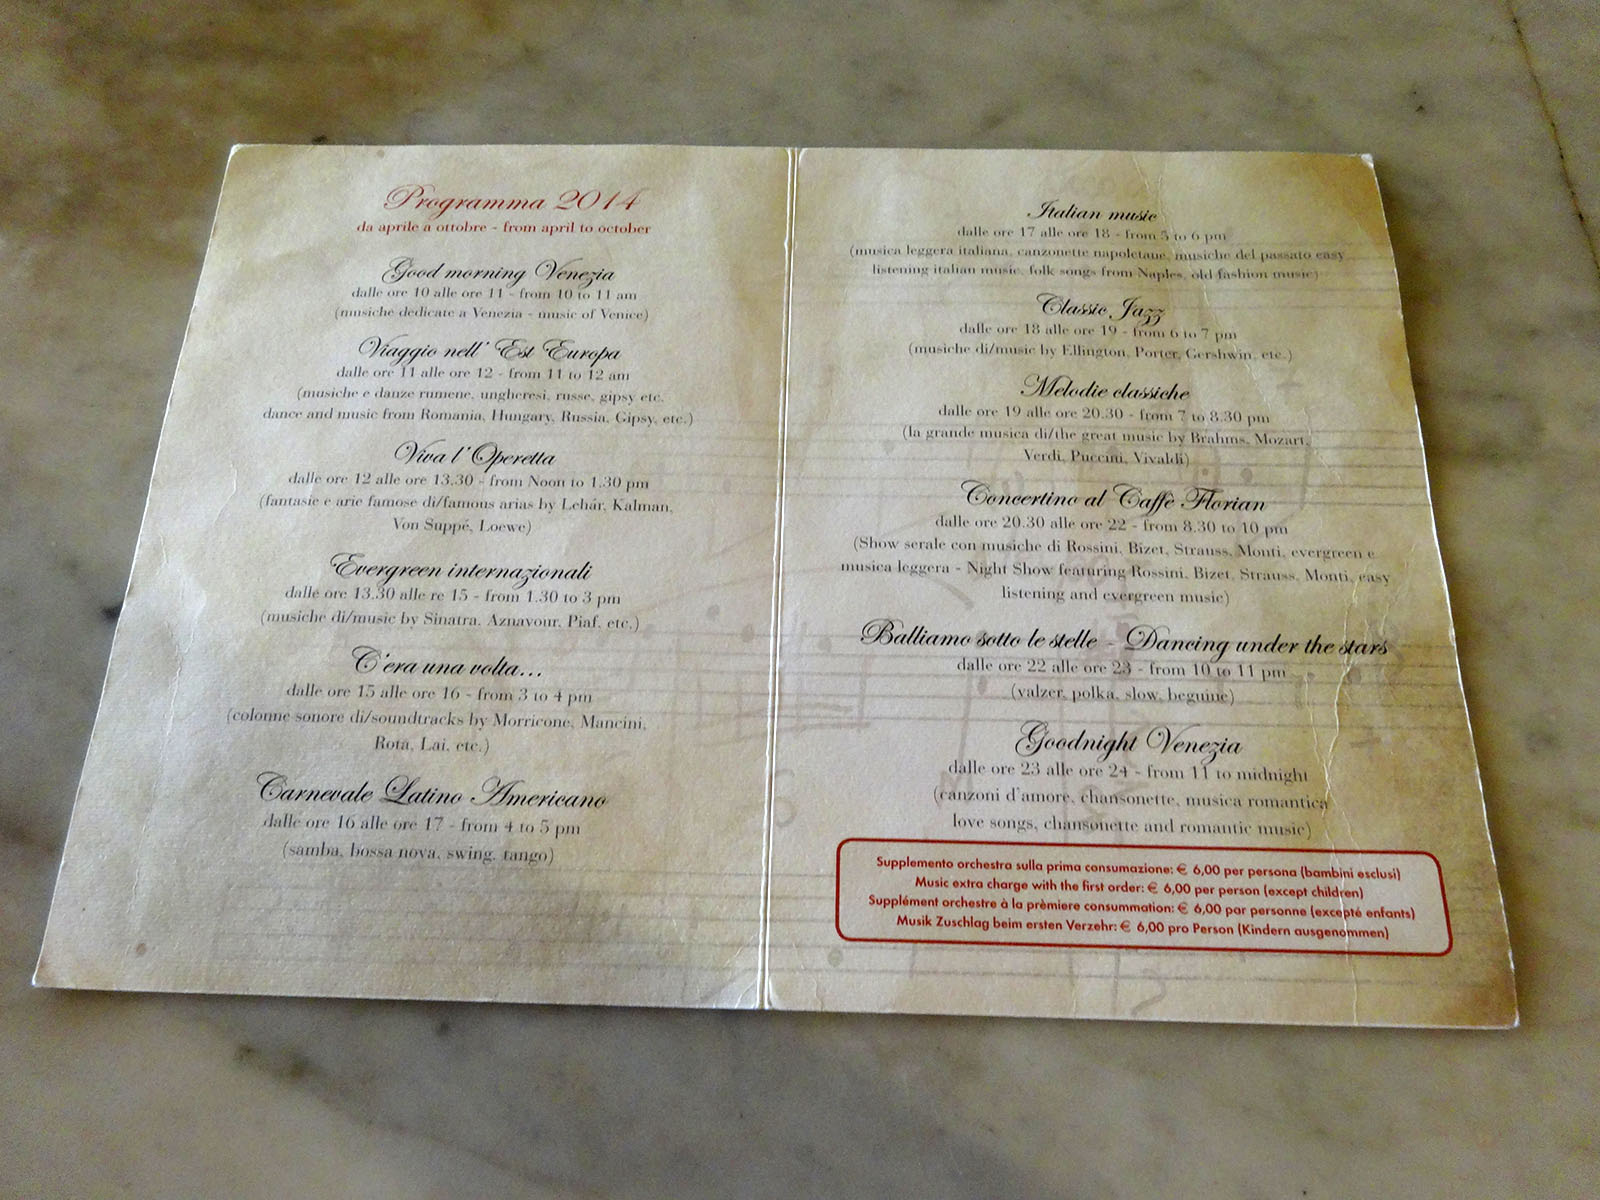 Programma 2014
da aprile a ottobre - from april to october
Good morning Venezia
dalle ore 10 alle ore 11 - from 10 to 11 am
(musiche dedicate a Venezia - music of Venice)
Viaggio nell' Est Europa
dalle ore 11 alle ore 12 - from 11 to 12 am
(musiche e danze rumene, ungheresi, russe, gipsy etc.
dance and music from Romania, Hungary, Russia, Gipsy, etc.)
Viva l'Operetta
dalle ore 12 alle ore 13.30 - from Noon to 1.30 pm
(fantasie e arie famose di/famous arias by Lehár, Kalman,
Von Suppé, Loewe)
Evergreen internazionali
dalle ore 13.30 alle re 15 - from 1.30 to 3 pm
(musiche di/music by Sinatra, Aznavour, Piaf, etc.)
C'era una volta...
dalle ore 15 alle ore 16 - from 3 to 4 pm
(colonne sonore di/soundtracks by Morricone, Mancini,
Rota, Lai, etc.)
Carnevale Latino Americano
dalle ore 16 alle ore 17 - from 4 to 5 pm
(samba, bossa nova, swing, tango)
Italian music
dalle ore 17 alle ore 18 - from 5 to 6 pm
(musica leggera italiana, canzonette napoletane, musiche del passato easy
listening italian music, folk songs from Naples, old fashion music)
Classic Jazz
dalle ore 18 alle ore 19 - from 6 to 7 pm
(musiche di/music by Ellington, Porter, Gershwin, etc.)
Melodie classiche
dalle ore 19 alle ore 20.30 - from 7 to 8.30 pm
(la grande musica di/the great music by Brahms, Mozart,
Verdi, Puccini, Vivaldi)
Concertino al Caffè Florian
dalle ore 20.30 alle ore 22 - from 8.30 to 10 pm
(Show serale con musiche di Rossini, Bizet, Strauss, Monti, evergreen e
musica leggera - Night Show featuring Rossini, Bizet, Strauss, Monti, easy
listening and evergreen music)
Balliamo sotto le stelle - Dancing under the stars
dalle ore 22 alle ore 23 - from 10 to 11 pm
(valzer, polka, slow, beguine)
Goodnight Venezia
dalle ore 23 alle ore 24 - from 11 to midnight
(canzoni d'amore, chansonette, musica romantica
love songs, chansonette and romantic music)
Supplemento orchestra sulla prima consumazione: € 6,00 per persona (bambini esclusi)
Music extra charge with the first order: € 6,00 per person (except children)
Supplément orchestre à la prèmiere consummation: € 6,00 par personne (excepté enfants)
Musik Zuschlag beim ersten Verzehr: € 6,00 pro Person (Kindern ausgenommen)